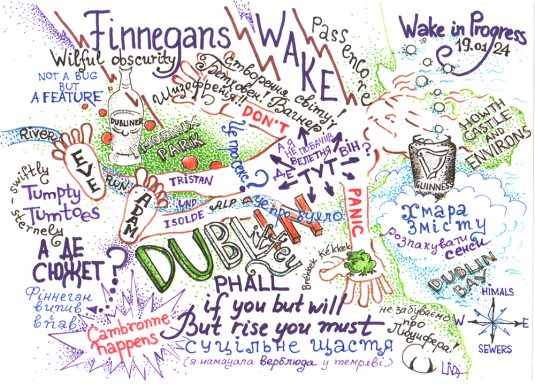 Finnegans
WAKE
Passencore
Wake in Progress
19.01.24
Wilful obscurity
NOT A BUG
BUT
A FEATURE
DUBLINER
PHOENIX
PARK
Створення світу!
Бетховен. Вагнер
Шизофренія!!
DON'T
PANIC
А Я
НЕ ПОБАЧИВ
ВЕЛЕТНЯ
ДЕ
ТУТ
ВІН?
Це про секс?
Це про бухло
HOWTH
CASTLE
AND
ENVIRONS
GUINNESS
River
RUN
EVE
ADM
TRISTAN
UND
ISOLDE
SALP
swiftly
Tumpty
Tumtoes
sternely
А ДЕ
СЮЖЕТ?
Фіннеган
випив
і впав
Cambronne
happens
DUBLIN
liffey
Brekkek Kékkek
Хмара
змісту
розпакувати
сенси
DUBLIN
BAY
PHALL
if you but will
But rise you must
суцільне щастя
(я намацала верблюда у темряві)
не забуваємо
про
Люцифера!
HIMALS
W
E
SEWERS